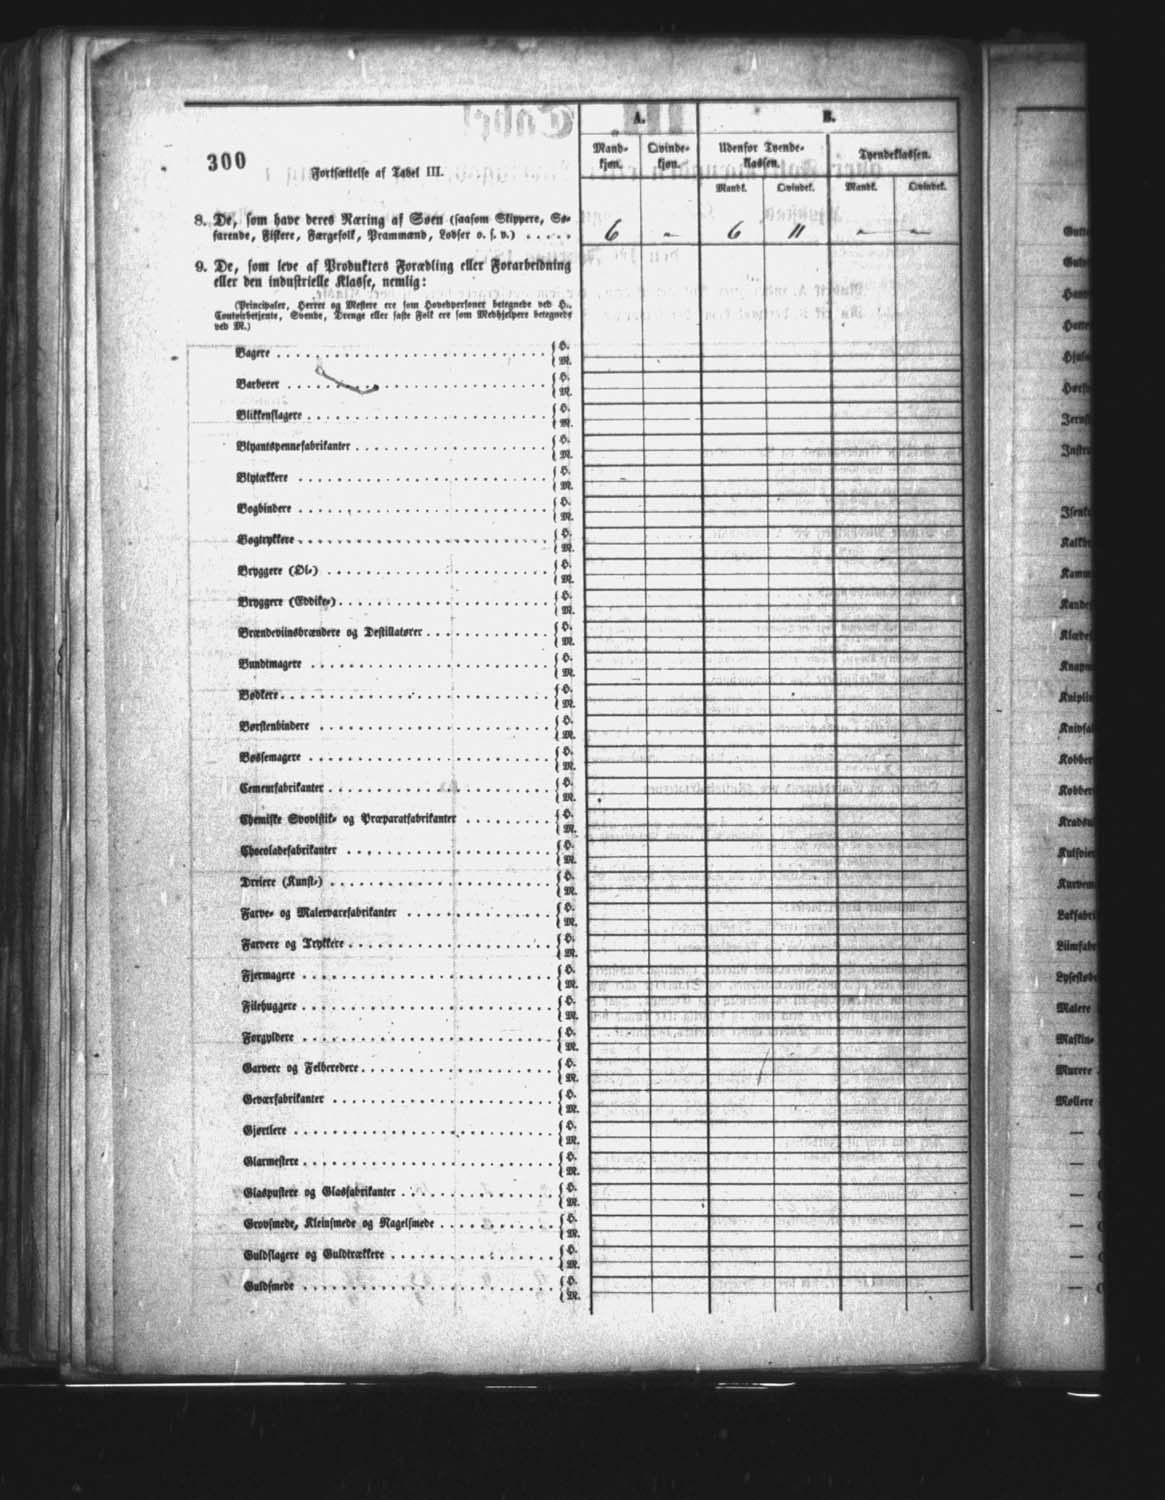 A. B.
Mand-
kjøn.
Qvinde-
kjøn.
Udenfor Tyende-
klassen.
Tyendeklassen.
Mandk. Qvindek. Mandk. Qvindek.
300
Fortsættelse af Tabel III.
8. De, som have deres Næring af Søen (saasom Skippere, Sø-
farende, Fiskere, Færgefolk, Prammænd, Lodser o. s. v.) . . . . . 6 „ 6 11 „ „
9. De, som leve af Produkters Forædling eller Forarbeidning
eller den industrielle Klasse, nemlig:
(Principaler, Herrer og Mestere ere som Hovedpersoner betegnede ved H.,
Contoirbetjente, Svende, Drenge eller faste Folk ere som Medhjelpere betegnede
ved M.)
Bagere { H.
{ M.
Barberer { H.
{ M.
Blikkenslagere { H.
{ M.
Blyantspennefabrikanter { H.
{ M.
Blytækkere { H.
{ M.
Bogbindere { H.
{ M.
Bogtrykkere { H.
{ M.
Bryggere (Øl-) { H.
{ M.
Bryggere (Eddike-) { H.
{ M.
Brændeviinsbrændere og Destillatører { H.
{ M.
Bundtmagere { H.
{ M.
Bødkere { H.
{ M.
Børstenbindere { H.
{ M.
Bøssemagere { H.
{ M.
Cementfabrikanter { H.
{ M.
Chemiske Svovlstik- og Præparatfabrikanter { H.
{ M.
Chocoladefabrikanter { H.
{ M.
Dreiere (Kunst-) { H.
{ M.
Farve- og Malervarefabrikanter { H.
{ M.
Farvere og Trykkere { H.
{ M.
Fjermagere { H.
{ M.
Filehuggere { H.
{ M.
Forgyldere { H.
{ M.
Garvere og Felberedere { H.
{ M.
Geværfabrikanter { H.
{ M.
Gjørtlere { H.
{ M.
Glarmestere { H.
{ M.
Glaspustere og Glasfabrikanter { H.
{ M.
Grovsmede, Kleinsmede og Nagelsmede { H.
{ M.
Guldslagere og Guldtrækkere { H.
{ M.
Guldsmede { H.
{ M.
Malere
Maskin-
Murere
Møllere